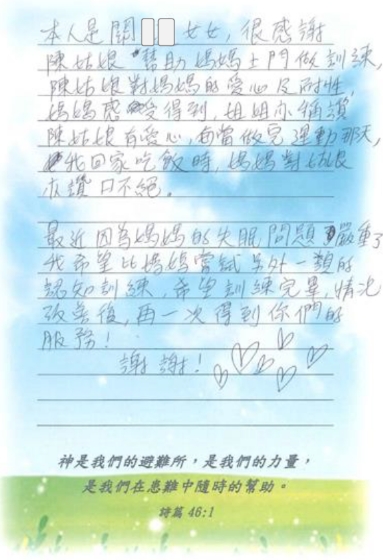 本人是關 女女，很感謝
陳姑娘幫助媽媽上門做訓練，
陳姑娘對媽媽的愛心及耐性，
媽媽感受得到，姐姐亦稱讚
陳姑娘有愛心，每當做完運動那天，
我回家吃飯時，媽媽對姑娘
亦讚口不絕。
最近因為媽媽的失眠問題嚴重了
我希望比媽媽嘗試另外一類的
認知訓練，希望訓練完畢，情況
改善後，再一次得到你們的
服務！
謝謝！
神是我們的避難所，是我們的力量，
是我們在患難中隨時的幫助。
詩篇 46:1